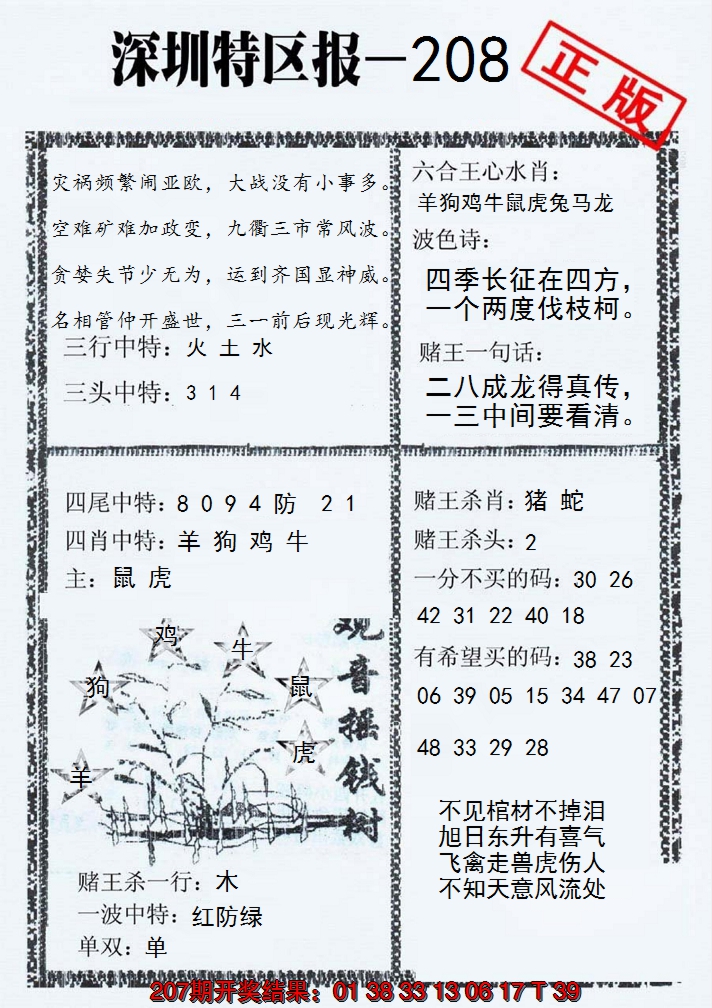 深圳特区报—208
正版
灾祸频繁闹亚欧，大战没有小事多。
空难矿难加政变，九衢三市常风波。
贪婪失节少无为，运到齐国显神威。
名相管仲开盛世，三一前后现光辉。
三行中特：火 土 水
三头中特：3 1 4
六合王心水肖：
羊狗鸡牛鼠虎兔马龙
波色诗：
四季长征在四方，
一个两度伐枝柯。
赌王一句话：
二八成龙得真传，
一三中间要看清。
四尾中特：8 0 9 4 防 2 1
四肖中特：羊 狗 鸡 牛
主：鼠 虎
鸡
牛
狗
鼠
虎
羊
观音摇钱树
赌王杀一行：木
一波中特：红防绿
单双：单
赌王杀肖：猪 蛇
赌王杀头：2
一分不买的码：30 26
42 31 22 40 18
有希望买的码：38 23
06 39 05 15 34 47 07
48 33 29 28
不见棺材不掉泪
旭日东升有喜气
飞禽走兽虎伤人
不知天意风流处
207期开奖结果：01 38 33 13 06 17 T 39